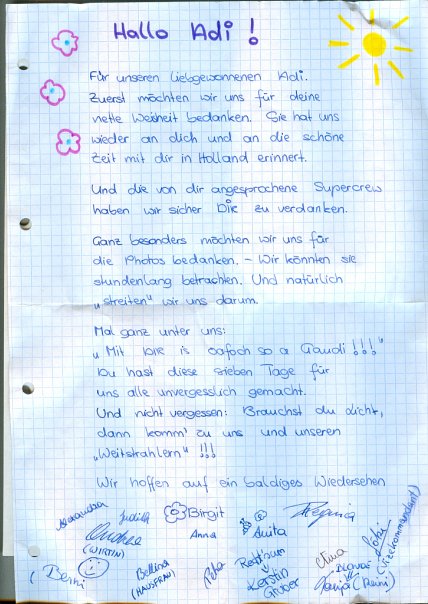 Hallo Adi !
Für unseren liebgewonnenen Adi.
Zuerst möchten wir uns für deine
nette Weisheit bedanken. Sie hat uns
wieder an dich und an die schöne
Zeit mit dir in Holland erinnert.
Und die von dir angesprochene Supercrew
haben wir sicher DIR zu verdanken.
Ganz besonders möchten wir uns für
die Photos bedanken. - Wir könnten sie
stundenlang betrachten. Und natürlich
„streiten" wir uns darum.
Mal ganz unter uns:
„Mit DIR is oafoch so a Gaudi !!!"
Du hast diese sieben Tage für
uns alle unvergesslich gemacht.
Und nicht vergessen: Brauchst du Licht,
dann komm' zu uns und unseren
„Weitstrahlern" !!!
Wir hoffen auf ein baldiges Wiedersehen
Alexandra Judith Birgit
Andrea Anna Anita
(WIRTIN)
Berni Bettina
(HAUSFRAU)
Kerstin
Gruber
(Vizekommandant)